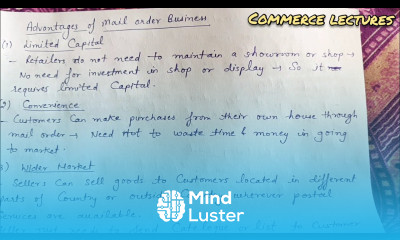 COMMERCE LECTURES
Advantages of Mail order Business
(1) Limited Capital
- Retailers do not need to maintain a showroom or shop →
No need for investment in shop or display → So it
requires limited Capital.
2) Convenience
- Customers Can make purchases from their own house through
mail order → Need not to waste time & money in going
to market.
3) Wider Market
Sellers Can sell goods to Customers located in different
parts of Country or outside wherever postal
services are available.
Mind
Luster